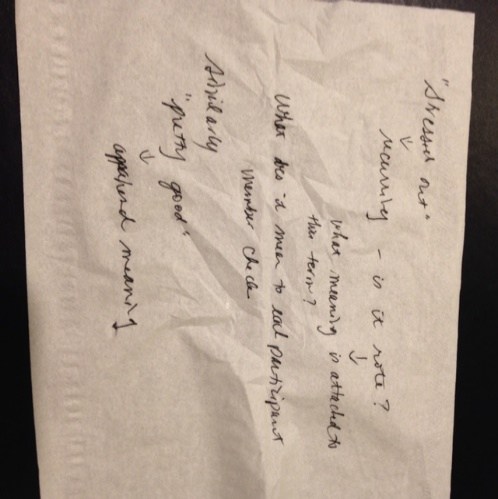 "Stressed out"
↓
recurring - is it rote?
↓
what meaning is attached to
this term?
What does it mean to each participant
Member check
Similarly
"pretty good"
↓
apprehend meaning